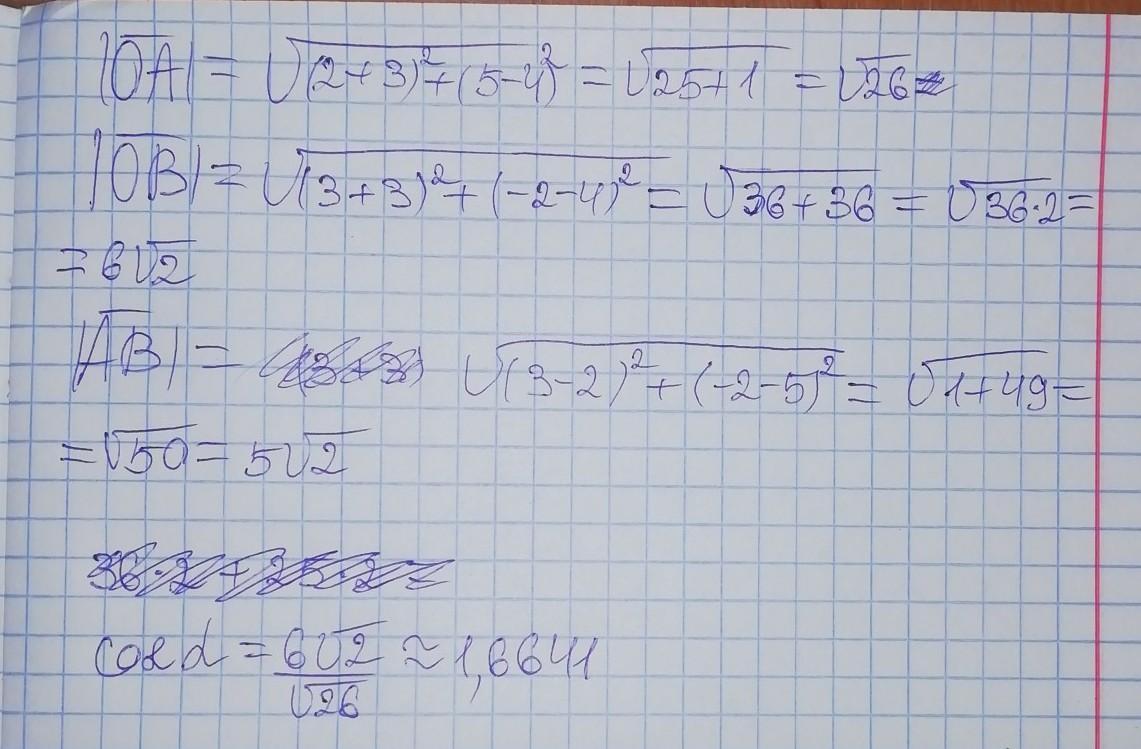 |OA| = √(2+3)²+(5-4)² = √25+1 = √26
|OB| = √(3+3)²+(-2-4)² = √36+36 = √36·2 =
= 6√2
|AB| = √(3-2)²+(-2-5)² = √1+49 =
= √50 = 5√2
cos α = 6√2/√26 ≈ 1,6641